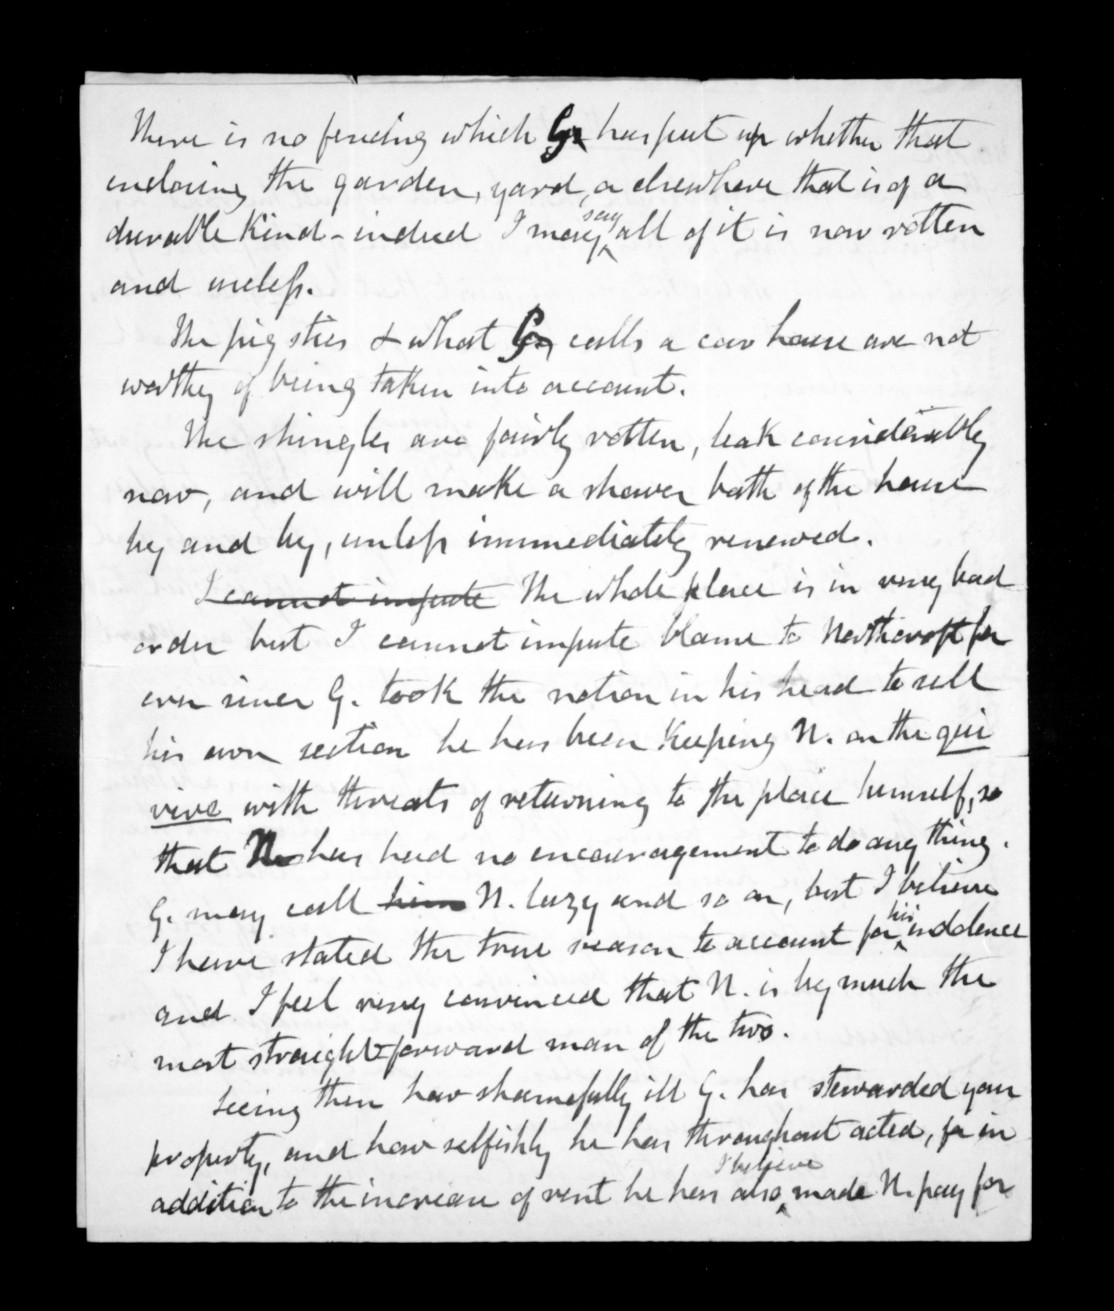 There is no fencing which G. has put up whether that
enclosing the garden, yard, or elsewhere that is of a
durable kind - indeed I may say all of it is now rotten
and useless.
The pig sties & what G. calls a cow house are not
worthy of being taken into account.
The shingles are fairly rotten, leak considerably
now, and will make a shower bath of the house
by and by, unless immediately renewed.
I cannot impute The whole place is in very bad
order but I cannot impute blame to Northcroft for
ever since G. took the notion in his head to sell
his own section he has been keeping N. on the qui
vive with threats of returning to the place himself, so
that N. has had no encouragement to do any thing.
G. may call him N. lazy and so on, but I believe
I have stated the true reason to account for his indolence
and I feel very convinced that N. is by much the
most straight forward man of the two.
Seeing then how shamefully ill G. has stewarded your
property, and how selfishly he has throughout acted, for in
addition to the increase of rent he has also I believe made N. pay for